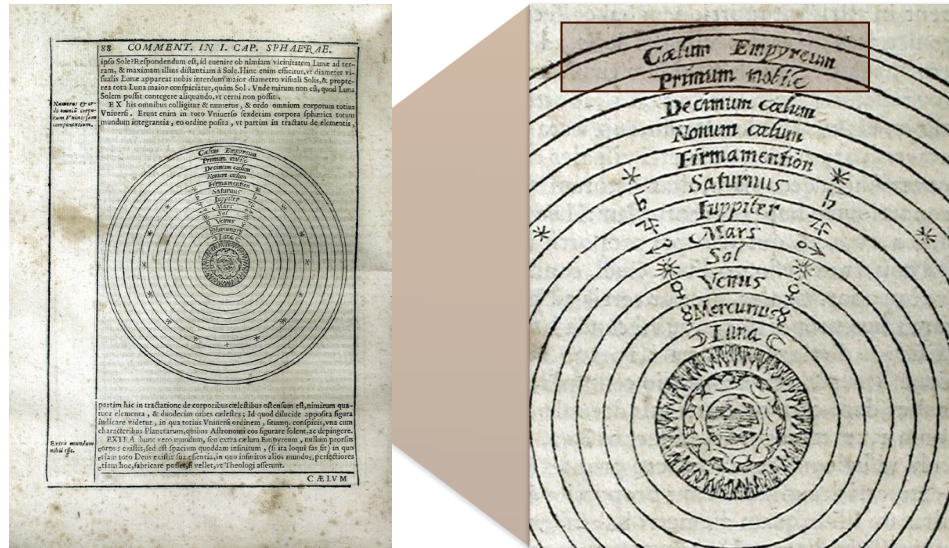 88 COMMENT. IN I. CAP. SPHAERAE.
ipso Sole? Respondendum est, id euenire ob nimiam vicinitatem Lunæ ad ter-
ram, & maximam illius distantiam à Sole. Hinc enim efficitur, vt diameter vi-
sualis Lunæ appareat nobis interdum maior diametro visuali Solis, & propte-
rea tota Luna maior conspiciatur, quàm Sol. Vnde mirum non est, quod Luna
Solem possit contegere aliquando, vt cerni non possit.
Numerus & or-
do omniū corpo-
rum Vniuersum
componentium.
EX his omnibus colligitur & numerus, & ordo omnium corporum totius
Vniuersi. Erunt enim in toto Vniuerso sexdecim corpora sphærica totum
mundum integrantia, eo ordine posita, vt partim in tractatu de elementis,
Cœlum Empyreum
Primum mobile
Decimum cœlum
Nonum cœlum
Firmamention
Saturnus
Iuppiter
Mars
Sol
Venus
Mercurius
Luna
partim hic in tractatione de corporibus cælestibus ostensum est, nimirum qua-
tuor elementa, & duodecim orbes cælestes; Id quod dilucide apposita figura
indicare videtur, in qua totius Vniuersi ordinem, situmq. conspicis, vna cum
characteribus Planetarum, quibus Astronomi eos figurare solent, ac depingere.
Extra mundum
nihil esse.
EXTRA hunc vero mundum, seu extra cælum Empyreum, nullum prorsus
corpus existit, sed est spacium quoddam infinitum, (si ita loqui fas sit) in quo
etiam toto Deus existit sua essentia, in quo infinitos alios mundos, perfectiores
etiam hoc, fabricare posset, si vellet, vt Theologi asserunt.
CÆLVM
Cœlum Empyreum
Primum mobile
Decimum cœlum
Nonum cœlum
Firmamention
Saturnus
♄ ♄
Iuppiter
♃ ♃
Mars
♂ ♂
Sol
Venus
♀ ♀
☿ Mercurius ☿
☽ Luna ☾